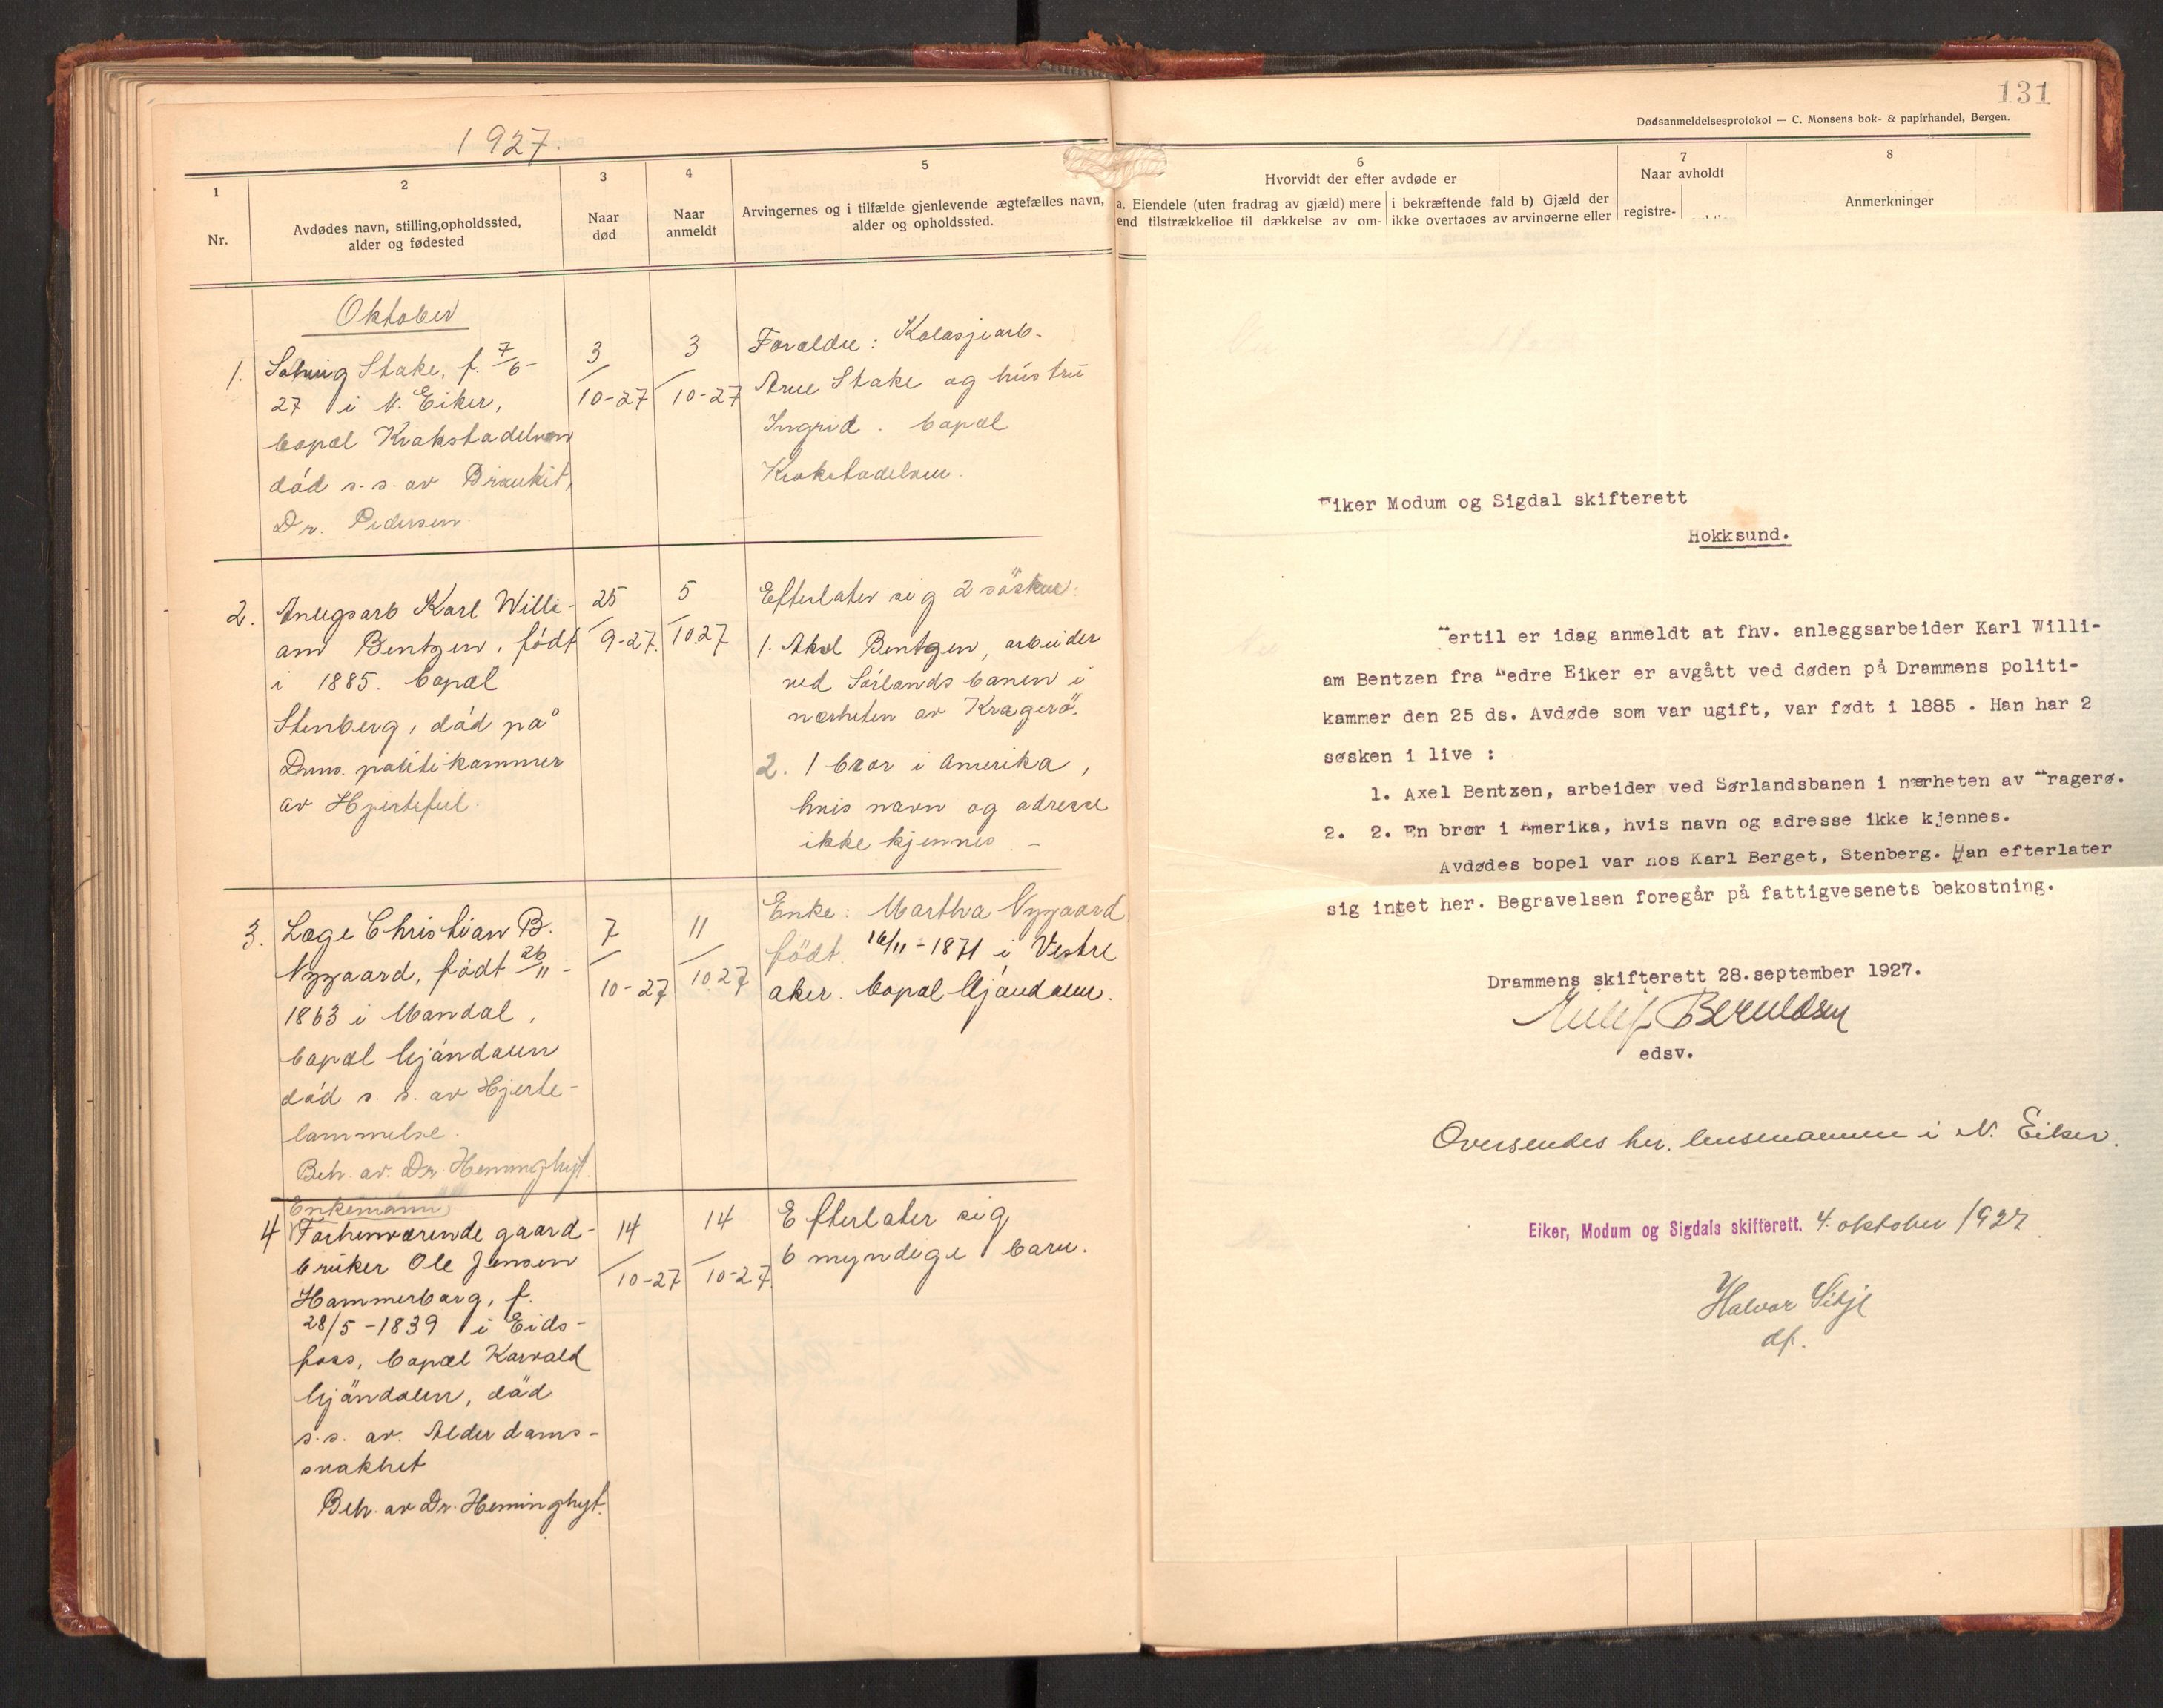 1927.
1
2
3
4
5
Nr.
Avdødes navn, stilling, opholdssted,
alder og fødested
Naar
død
Naar
anmeldt
Arvingernes og i tilfælde gjenlevende ægtefælles navn,
alder og opholdssted.
Oktober
1.
Solveig Stake, f. 7/6-
27 i N. Eiker,
bopæl Krokstadelven
død s. s. av Bronkit,
Dr. Pedersen.
3/10-27
3/10-27
Foreldre: Kolasjearb.
Arne Stake og hustru
Ingrid. bopæl
Krokstadelven.
2.
Anlegsarb Karl Willi-
am Bentzen, født
i 1885. bopæl
Stenberg, død på
Drms. politikammer
av Hjertefeil.
25/9-27.
5/10.27
Efterlater sig 2 søsken:
1. Aksel Bentzen, arbeider
ved Sørlandsbanen i
nærheten av Kragerø.
2. 1 bror i Amerika,
hvis navn og adresse
ikke kjennes. -
3.
Læge Christian B.
Nygaard, født 26/11-
1863 i Mandal,
bopæl Mjøndalen
død s. s. av Hjerte-
lammelse.
Beh. av. Dr. Heminghyt.
7/10-27
11/10.27
Enke: Martha Nygaard
født 16/11-1871 i Vestre
aker. bopæl Mjøndalen.
4
Enkemann
Forhenværende gaard-
bruker Ole Jensen
Hammerborg, f.
28/5-1839 i Eids-
foss, bopæl Karvald
Mjøndalen, død
s.s. av. Alderdoms-
svakhet
Beh. av Dr. Heminghyt.
14/10-27
14/10-27.
Efterlater sig
6 myndige barn.
131
Dødsanmeldelsesprotokol — C. Monsens bok- & papirhandel, Bergen.
6
Hvorvidt der efter avdøde er
a. Eiendele (uten fradrag av gjæld) mere
end tilstrækkelige til dækkelse av om-
i bekræftende fald b) Gjæld der
ikke overtages av arvingerne eller
7
Naar avholdt
registre-
8
Anmerkninger
Eiker Modum og Sigdal skifterett
Hokksund.
Hertil er idag anmeldt at fhv. anleggsarbeider Karl Willi-
am Bentzen fra Nedre Eiker er avgått ved døden på Drammens politi-
kammer den 25 ds. Avdøde som var ugift, var født i 1885 . Han har 2
søsken i live :
1. Axel Bentzen, arbeider ved Sørlandsbanen i nærheten av Kragerø.
2. 2. En bror i Amerika, hvis navn og adresse ikke kjennes.
Avdødes bopel var hos Karl Berget, Stenberg. Han efterlater
sig intet her. Begravelsen foregår på fattigvesenets bekostning.
Drammens skifterett 28.september 1927.
edsv.
Oversendes hr. lensmannen i N. Eiker.
Eiker, Modum og Sigdals skifterett. 4. oktober 1927
Halvor
df.